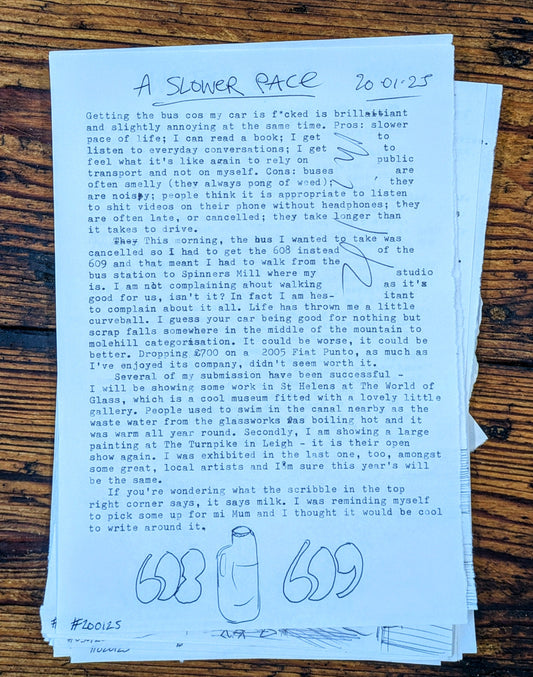 A SLOWER PACE 20·01·25
Getting the bus cos my car is f*cked is brilliant
and slightly annoying at the same time. Pros: slower
pace of life; I can read a book; I get to
listen to everyday conversations; I get to
feel what it's like again to rely on public
transport and not on myself. Cons: buses are
often smelly (they always pong of weed); they
are noisy; people think it is appropriate to listen
to shit videos on their phone without headphones; they
are often late, or cancelled; they take longer than
it takes to drive.
They This morning, the bus I wanted to take was
cancelled so I had to get the 608 instead of the
609 and that meant I had to walk from the
bus station to Spinners Mill where my studio
is. I am not complaining about walking as it's
good for us, isn't it? In fact I am hes- itant
to complain about it all. Life has thrown me a little
curveball. I guess your car being good for nothing but
scrap falls somewhere in the middle of the mountain to
molehill categorisation. It could be worse, it could be
better. Dropping £700 on a 2005 Fiat Punto, as much as
I've enjoyed its company, didn't seem worth it.
Several of my submission have been successful -
I will be showing some work in St Helens at The World of
Glass, which is a cool museum fitted with a lovely little
gallery. People used to swim in the canal nearby as the
waste water from the glassworks was boiling hot and it
was warm all year round. Secondly, I am showing a large
painting at The Turnpike in Leigh - it is their open
show again. I was exhibited in the last one, too, amongst
some great, local artists and I'm sure this year's will
be the same.
If you're wondering what the scribble in the top
right corner says, it says milk. I was reminding myself
to pick some up for mi Mum and I thought it would be cool
to write around it.
608 609
#200125